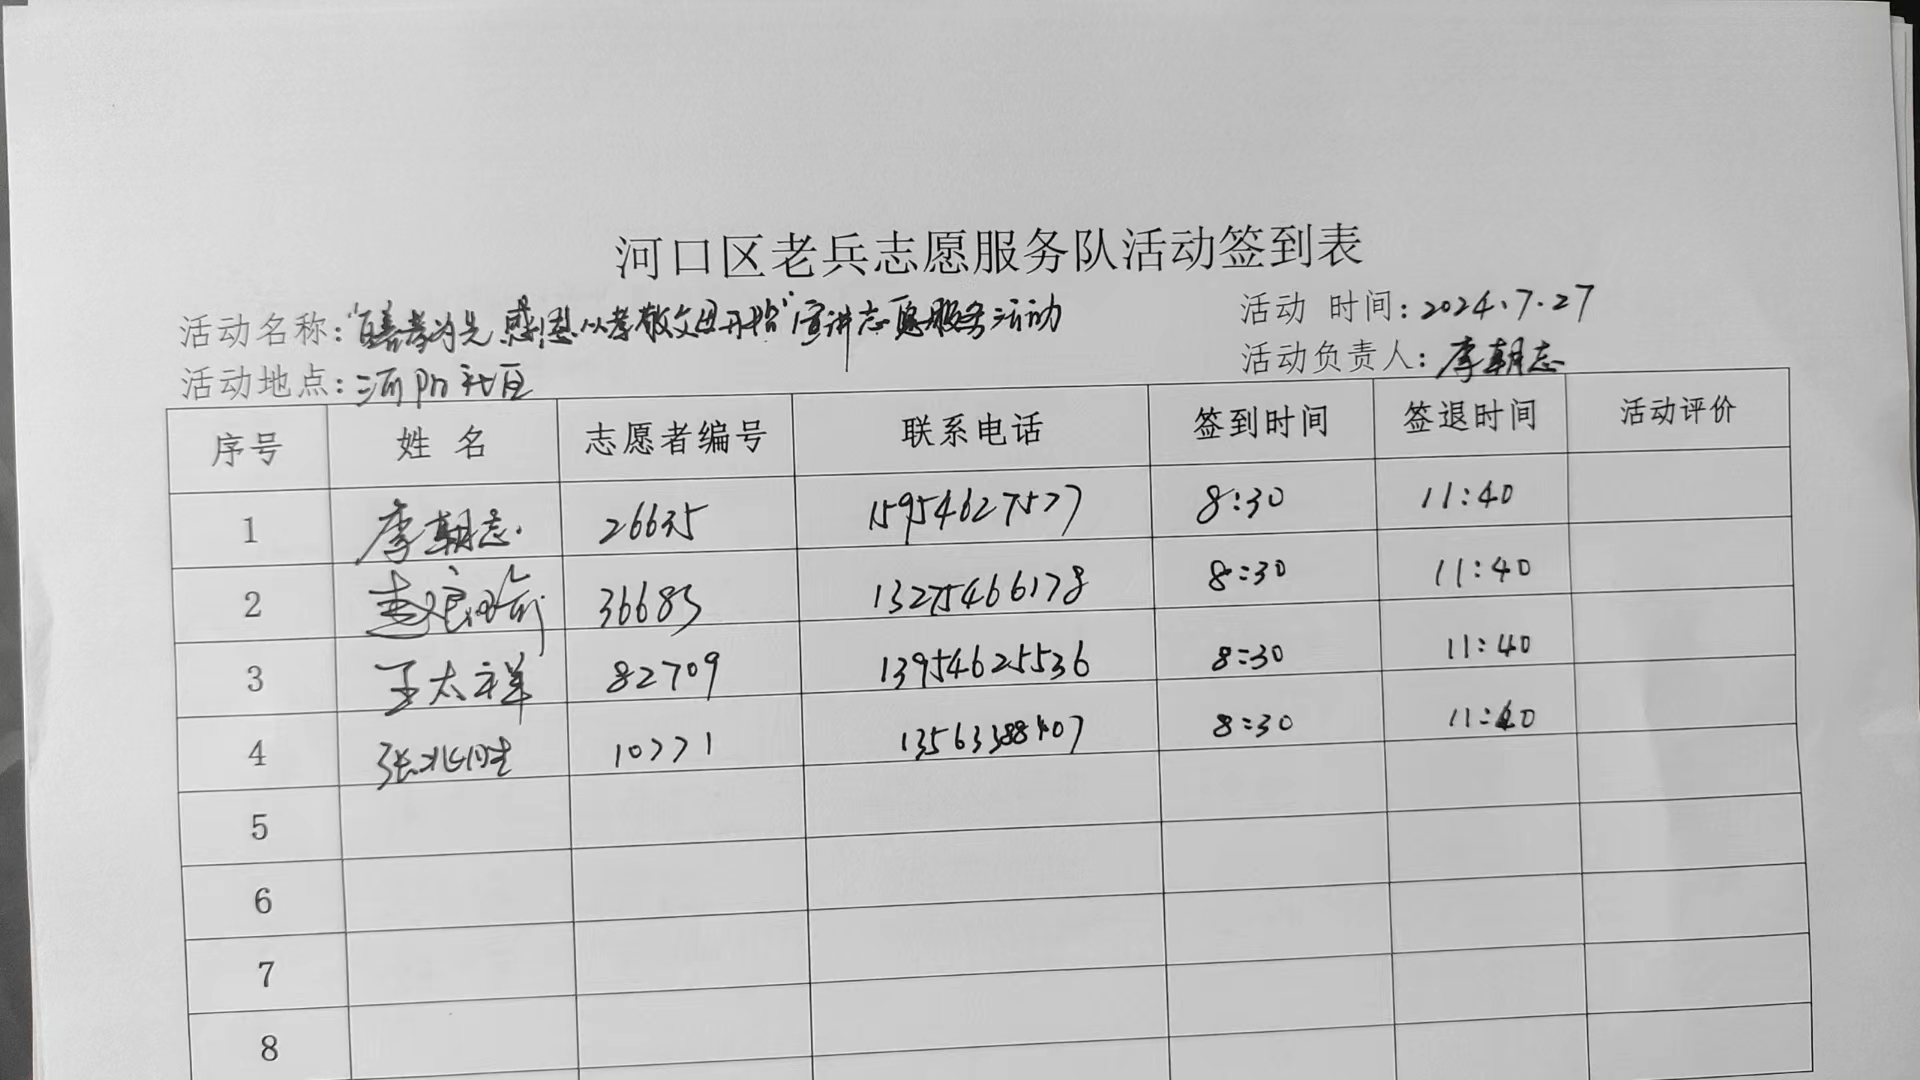 河口区老兵志愿服务队活动签到表
活动名称:"百善孝为先 感恩从孝敬父母开始"宣讲志愿服务活动 活动 时间:2024.7.27
活动地点:河阳社区 活动负责人:李朝志
序号 姓 名 志愿者编号 联系电话 签到时间 签退时间 活动评价
1 李朝志 26635 15954627577 8:30 11:40
2 36683 13275466178 8:30 11:40
3 王太祥 82709 13954625536 8:30 11:40
4 张兆胜 10771 8:30 11:40
5
6
7
8